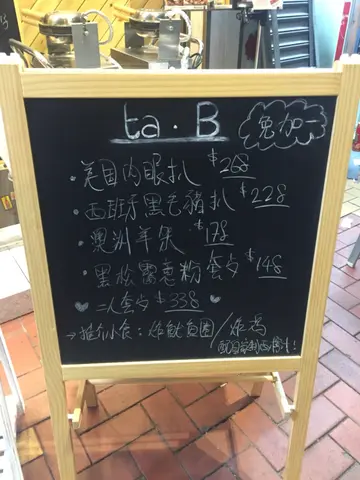 ta·B
免加一
·美国肉眼扒 $268
·西班牙黑毛豬扒 $228
·澳洲羊架 $178
·黑松露意粉套歺 $148
♥二人套歺 $338♥
→推介小食：炸魷魚圈/炸鸡
配自家制西梅汁！